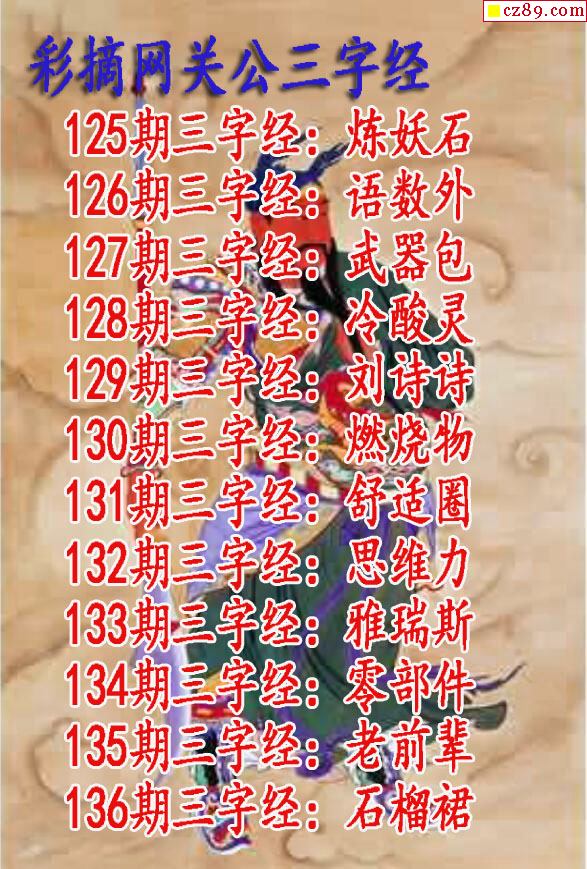 cz89.com
彩摘网关公三字经
125期三字经：炼妖石
126期三字经：语数外
127期三字经：武器包
128期三字经：冷酸灵
129期三字经：刘诗诗
130期三字经：燃烧物
131期三字经：舒适圈
132期三字经：思维力
133期三字经：雅瑞斯
134期三字经：零部件
135期三字经：老前辈
136期三字经：石榴裙